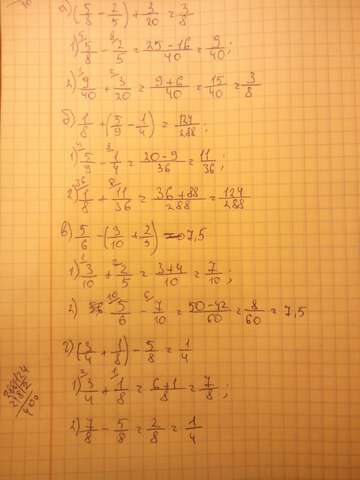 а) (5/8 - 2/5) + 3/20 = 3/8
1) 5/8 - 2/5 = 25-16/40 = 9/40;
2) 9/40 + 3/20 = 9+6/40 = 15/40 = 3/8
б) 1/8 + (5/9 - 1/4) = 124/288;
1) 5/9 - 1/4 = 20-9/36 = 11/36;
2) 1/8 + 11/36 = 36+88/288 = 124/288
в) 5/6 - (3/10 + 2/5) = 7,5
1) 3/10 + 2/5 = 3+4/10 = 7/10;
2) 5/6 - 7/10 = 50-42/60 = 8/60 = 7,5
г) (3/4 + 1/8) - 5/8 = 1/4
1) 3/4 + 1/8 = 6+1/8 = 7/8;
2) 7/8 - 5/8 = 2/8 = 1/4